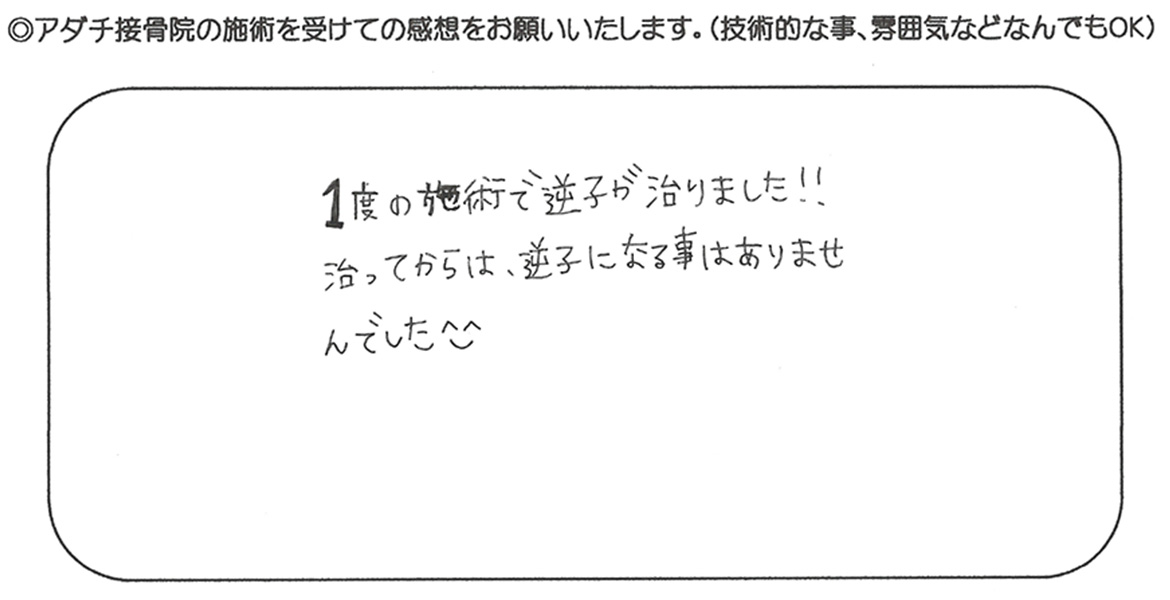 ◎アダチ接骨院の施術を受けての感想をお願いいたします。(技術的な事、雰囲気などなんでもOK)
1度の施術で逆子が治りました!!
治ってからは、逆子になる事はありませ
んでした^^